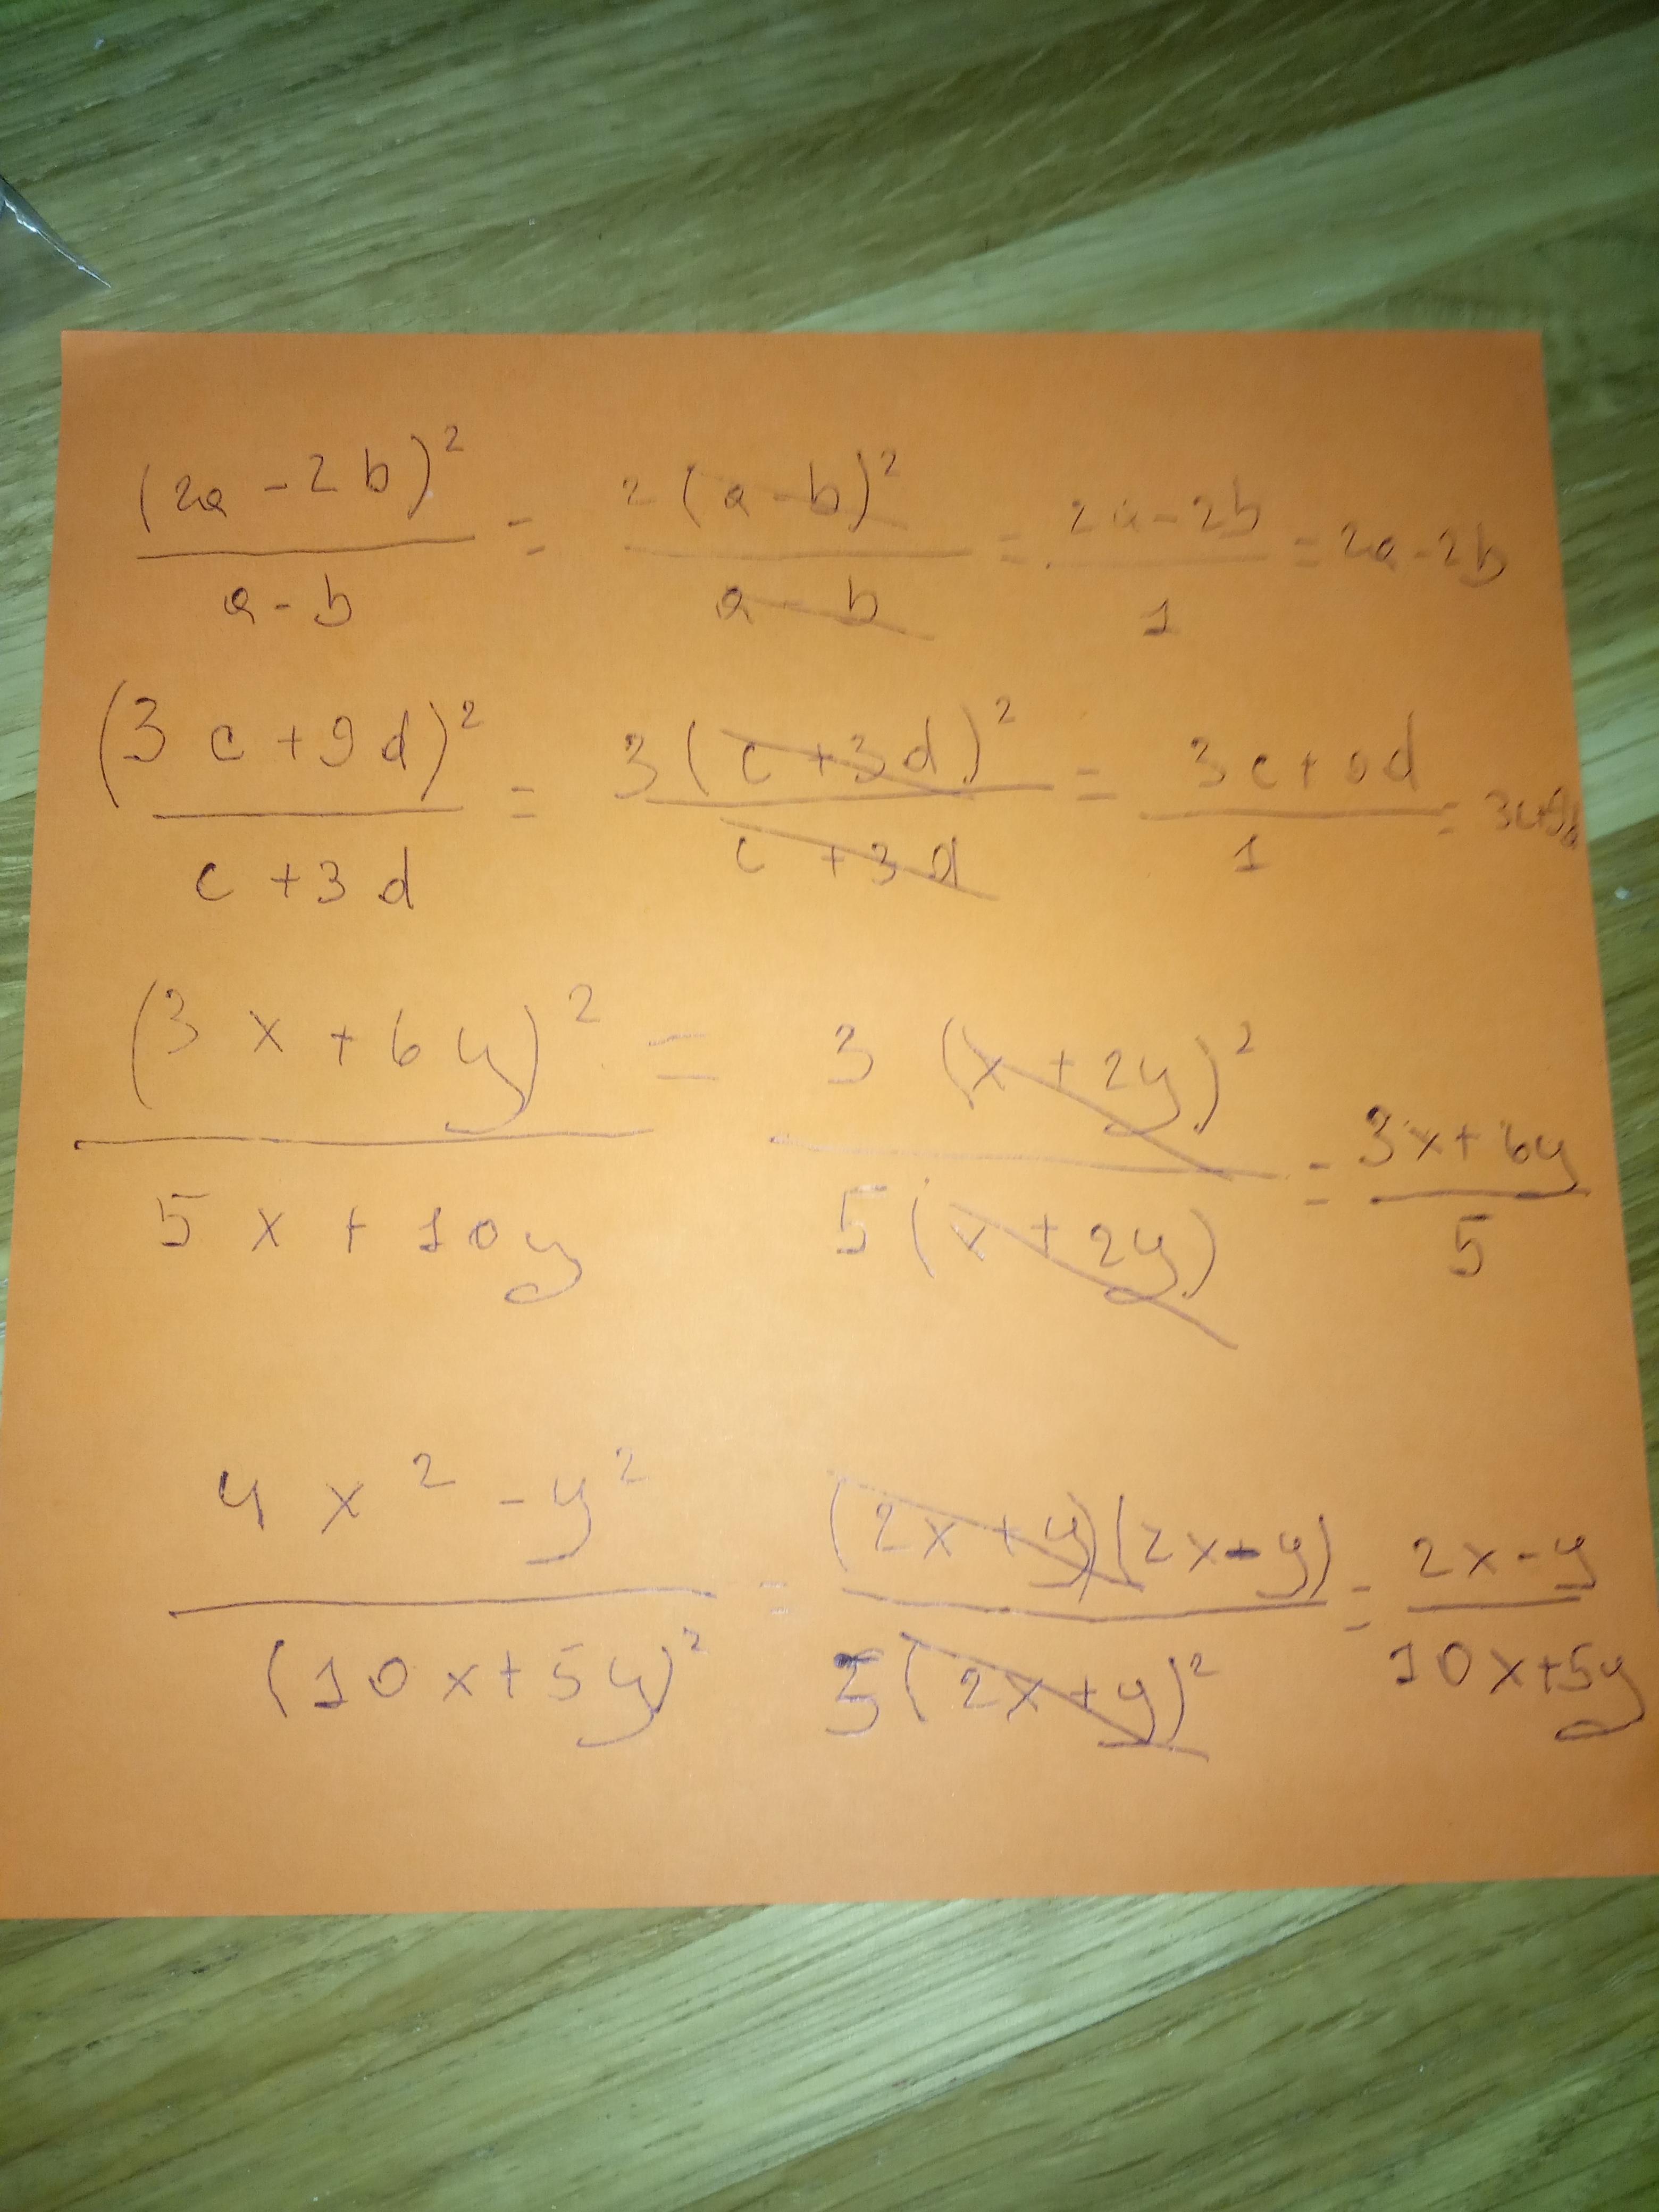 (2a - 2b)² / a - b = 2(a - b)² / a - b = 2a - 2b / 1 = 2a - 2b
(3c + 9d)² / c + 3d = 3(c + 3d)² / c + 3d = 3c + 9d / 1 =
(3x + 6y)² / 5x + 10y = 3(x + 2y)² / 5(x + 2y) = 3x + 6y / 5
4x² - y² / (10x + 5y)² = (2x + y)(2x - y) / 5(2x + y)² = 2x - y / 10x + 5y